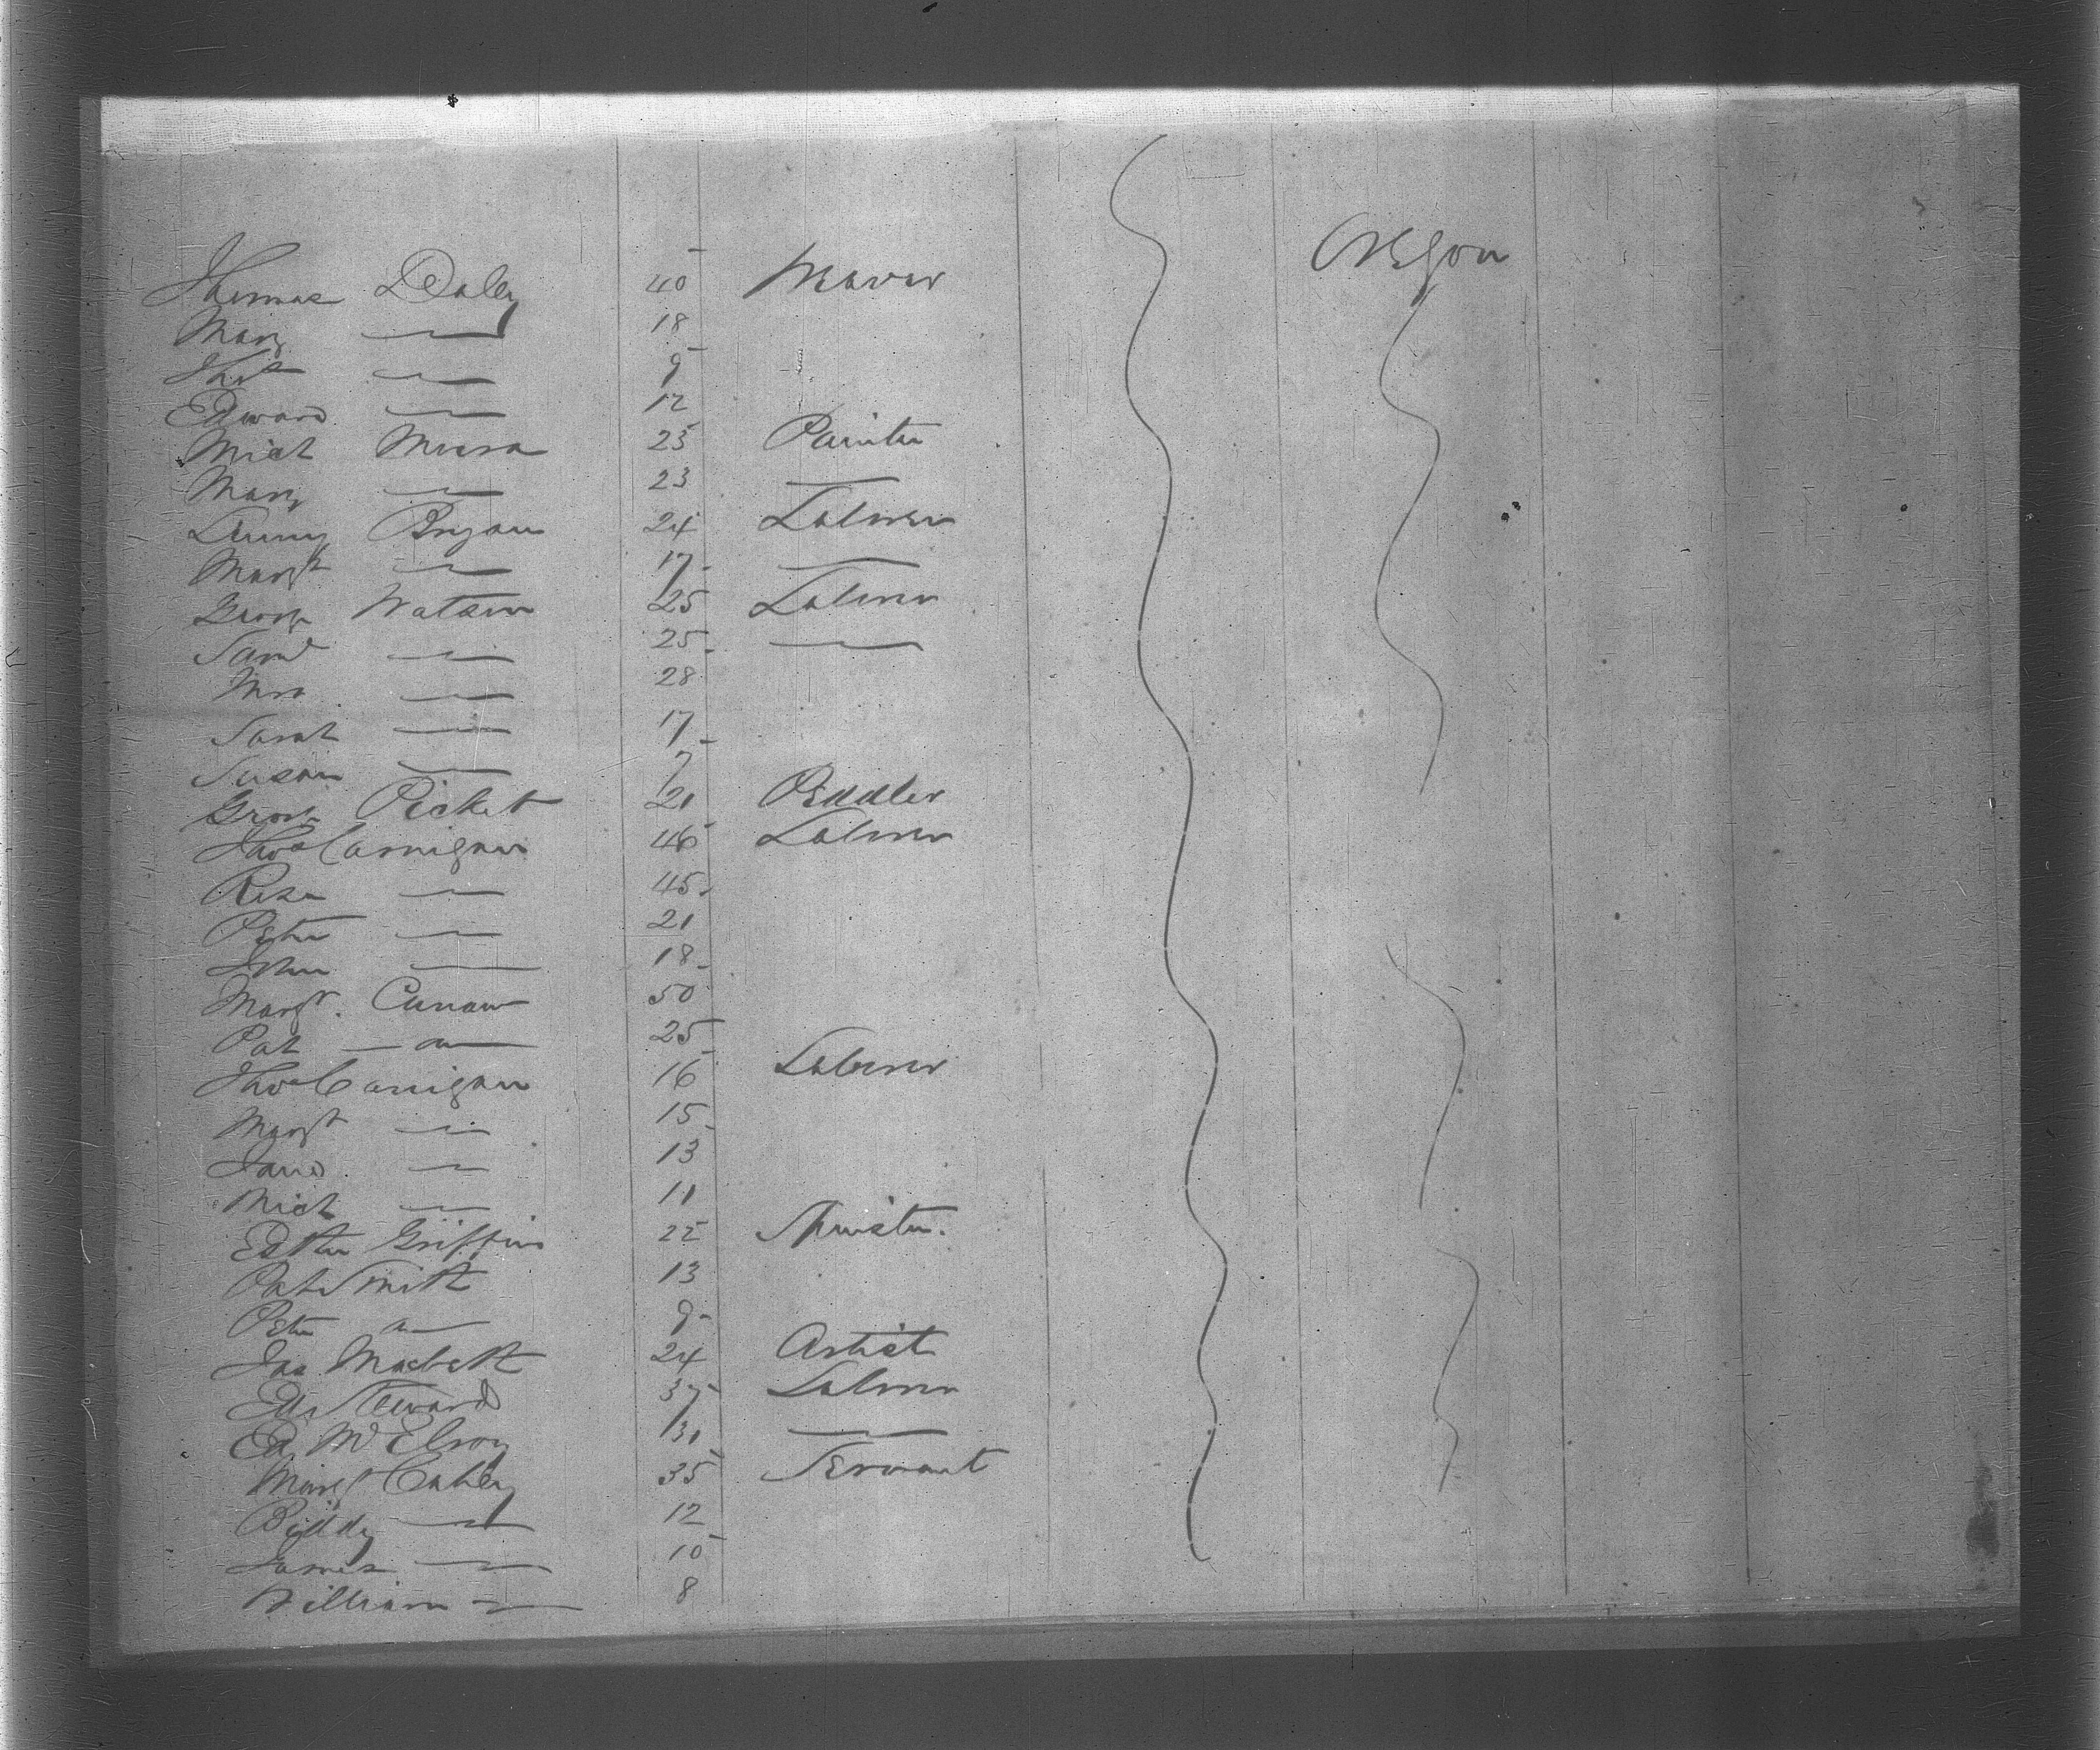 Thomas Daley 40 Weaver Oregon
Mary — 18
— 9
Edward — 12
Mich 25 Painter
Mary — 23 —
Bryan 24 Laborer
Margt — 17 —
George Watson 25 Laborer
Saml — 25 —
Mrs — 28
Sarah — 17
Susan — 7
George Picket 21 Peddler
Thos Carrigan 46 Laborer
Rosa — 45
Peter — 21
John — 18
Margt. 50
Pat — 25
Thos Carrigan 16 Laborer
Margt — 15
— 13
Mich — 11
Esther Griffin 22 Spinster.
Pat Smith 13
Peter — 9
Jas Macbeth 24 Artist
Ed Steward 37 Laborer
Ed McElroy 31 —
Margt Cahley 35 Servant
Biddy — 12
James — 10
William — 8